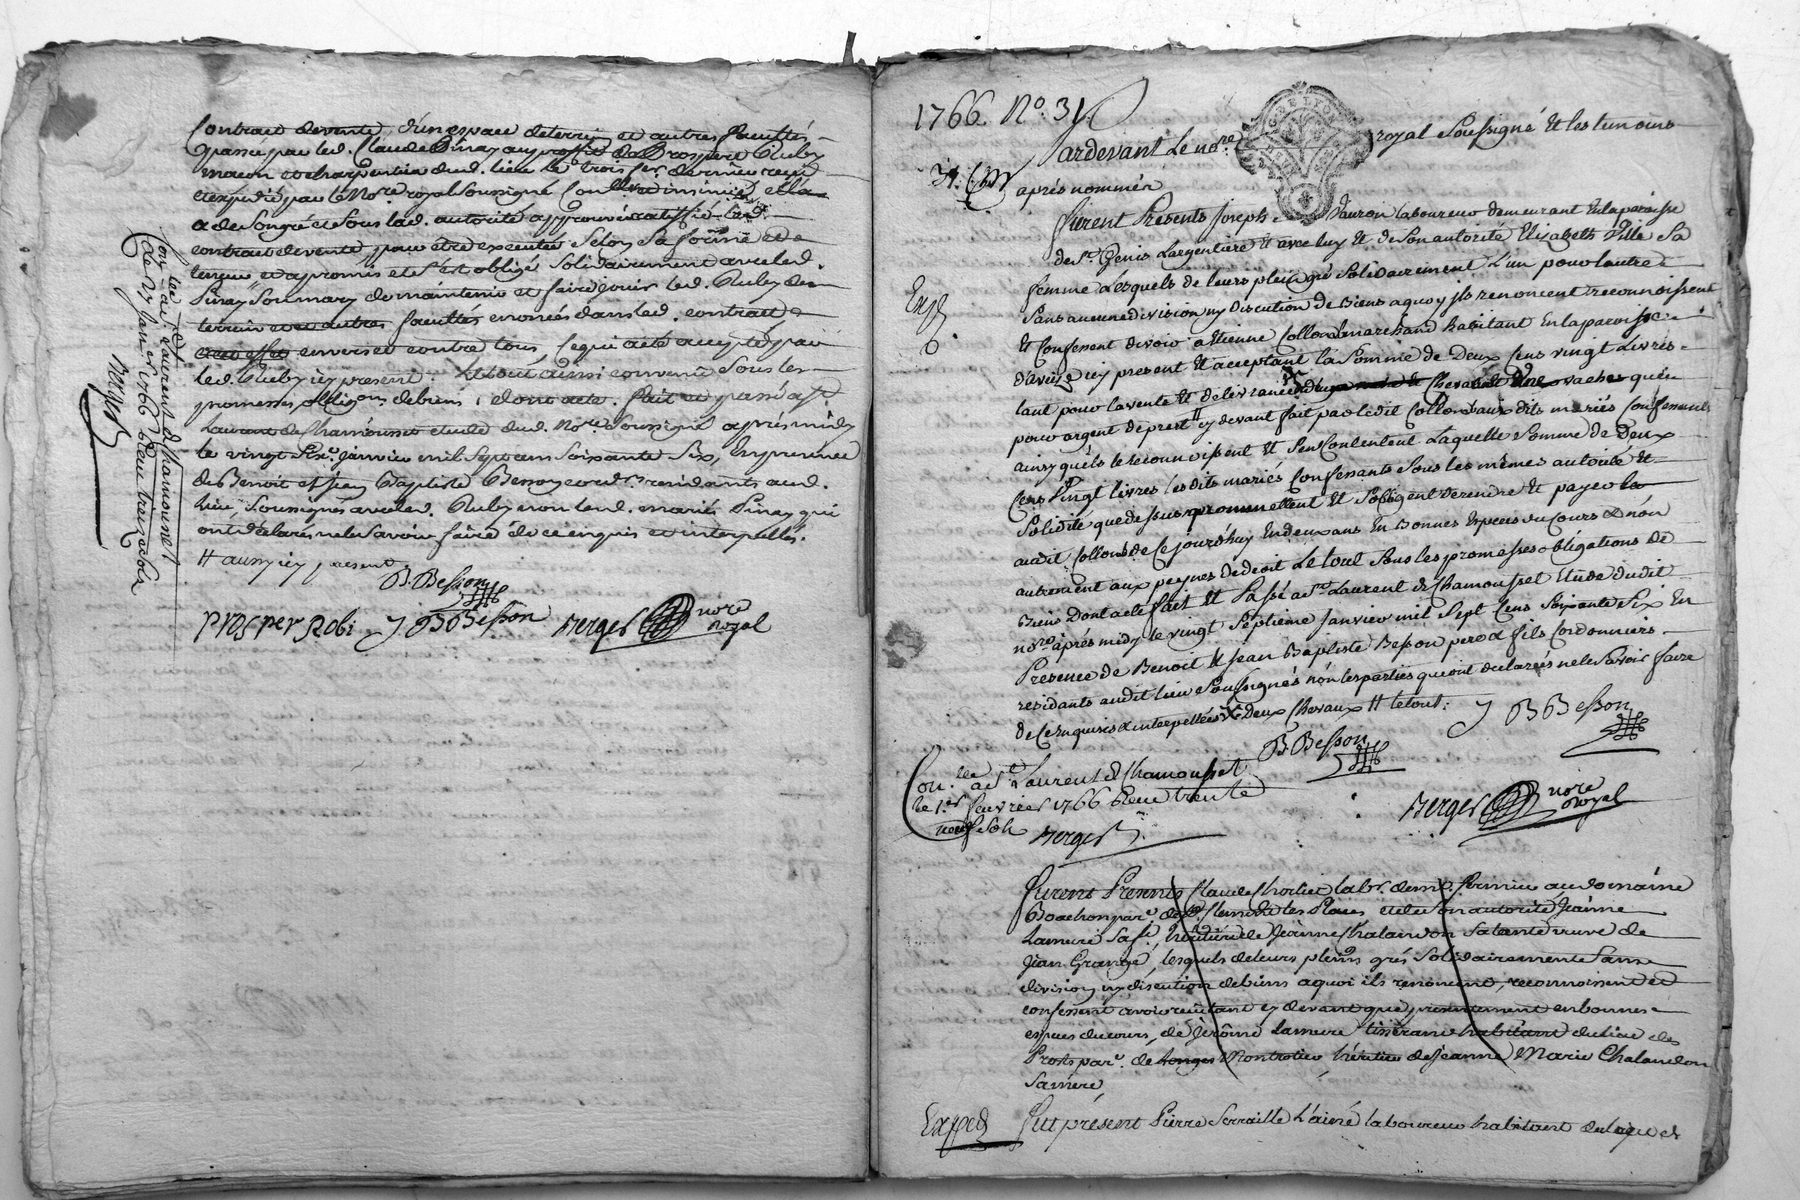 Contract de vente, d'un espace de terrein et autres facultés
passé par led. Claude Pinay au proffit de Prospere Ruby
macon et charpentier dud. lieu le trois fer. dernier receu
et expedié par le No.re royal soussigné
a de son gré et sous lad. autorité approuvé ratiffié led.
contract de vente pour etre executé selon sa forme et
teneur et a promis et s'est obligé solidairement avec led.
Pinay son mary de maintenir et faire jouir led. Ruby du
terrein et autres facultés enoncés dans led. contract
envers et contre tous, ce qui a eté accepté par
led. Ruby icy present. Le tout ainsi convenu sous les
promesses obligons. de biens, dont acte. fait et passé a St
Laurent de Chamousset etude dud. No.re soussigné après midy
le vingt six.e janvier mil sept cens soixante six, En presence
de Benoit et Jean Baptiste Besson cord.rs residants aud.
lieu, Soussignés avec led. Ruby non led. mariés Pinay qui
ont déclarés ne le savoir faire de ce enquis et interpellés.
# aussy icy present
B. Besson
Prosper Robi J B Besson Berger nore royal
Con.lé a St. Laurent de Chamousset
le 27 Janvier 1766 Receu treize sols
Berger
1766. No. 31.
Pardevant Le no.re royal Soussigné Et les temoins
31. après nommés
furent Presents Joseph Dauron laboureur demeurant En la paroisse
de St. Genis Largentiere Et avec luy Et de son autorité Elizabeth Ville Sa
femme Lesquels de leurs plein gré Solidairement L'un pour lautre
Exp
Sans aucune division ny discution de Biens a quoy ils renoncent reconnoissent
Et Confessent devoir a Etienne Collond marchand habitant En la paroisse
d'aveize icy present Et acceptant la Somme de Deux Cens vingt Livres
tant pour la vente Et delivrance que
pour argent de prest cy devant fait par ledit Collond auxdits mariés Comme
ainsy qu'ils le reconnoissent Et Sen Contentent Laquelle Somme de Deux
Cens Vingt livres lesdits mariés Confessants Sous les mêmes autorité Et
Solidité que dessus promettent Et Sobligent de rendre Et payer
audit Collond de Ce jourd'huy En deux ans En Bonnes Especes du Cours & nón
autrement aux peynes de droit Le tout Sous les promesses obligations de
Biens Dont acte fait Et Passé a St. Laurent de Chamousset Etude dudit
no.re après midy le vingt Septieme Janvier mil Sept Cens Soixante Six En
Presence de Benoit Et Jean Baptiste Besson pere & fils Cordonniers
residants audit lieu Soussignés nón les parties qui ont declarées ne le Savoir faire
de Ce Enquises & interpellées X Deux Chevaux # le tout:
J B Besson
B Besson
Con.lé a St. Laurent de Chamousset
le 1.er fevrier 1766 Receu trente
neuf Sols
Berger
Berger nore Royal
furent Presents Claude Chollet labr. demt. fermier au domaine
Boachon par.e de les Places et de son autorité Jeanne
Lameire sa fe. héritiere de Jeanne Chalandon sa tante veuve de
Jean Grange, lesquels de leurs pleins grés Solidairement et Sans
division ny discution de biens a quoi ils renoncent, reconnoissent et
confessent avoir receu tant cy devant que présentement en bonnes
especes du cours, de Jerôme Lameire tisserand habitant du lieu des
Prosts par.e de Longes Montrotier héritier de Jeanne Marie Chalandon
Sa mere
Exped
fut présent Pierre Serraille L'ainé laboureur habitant du lieu de